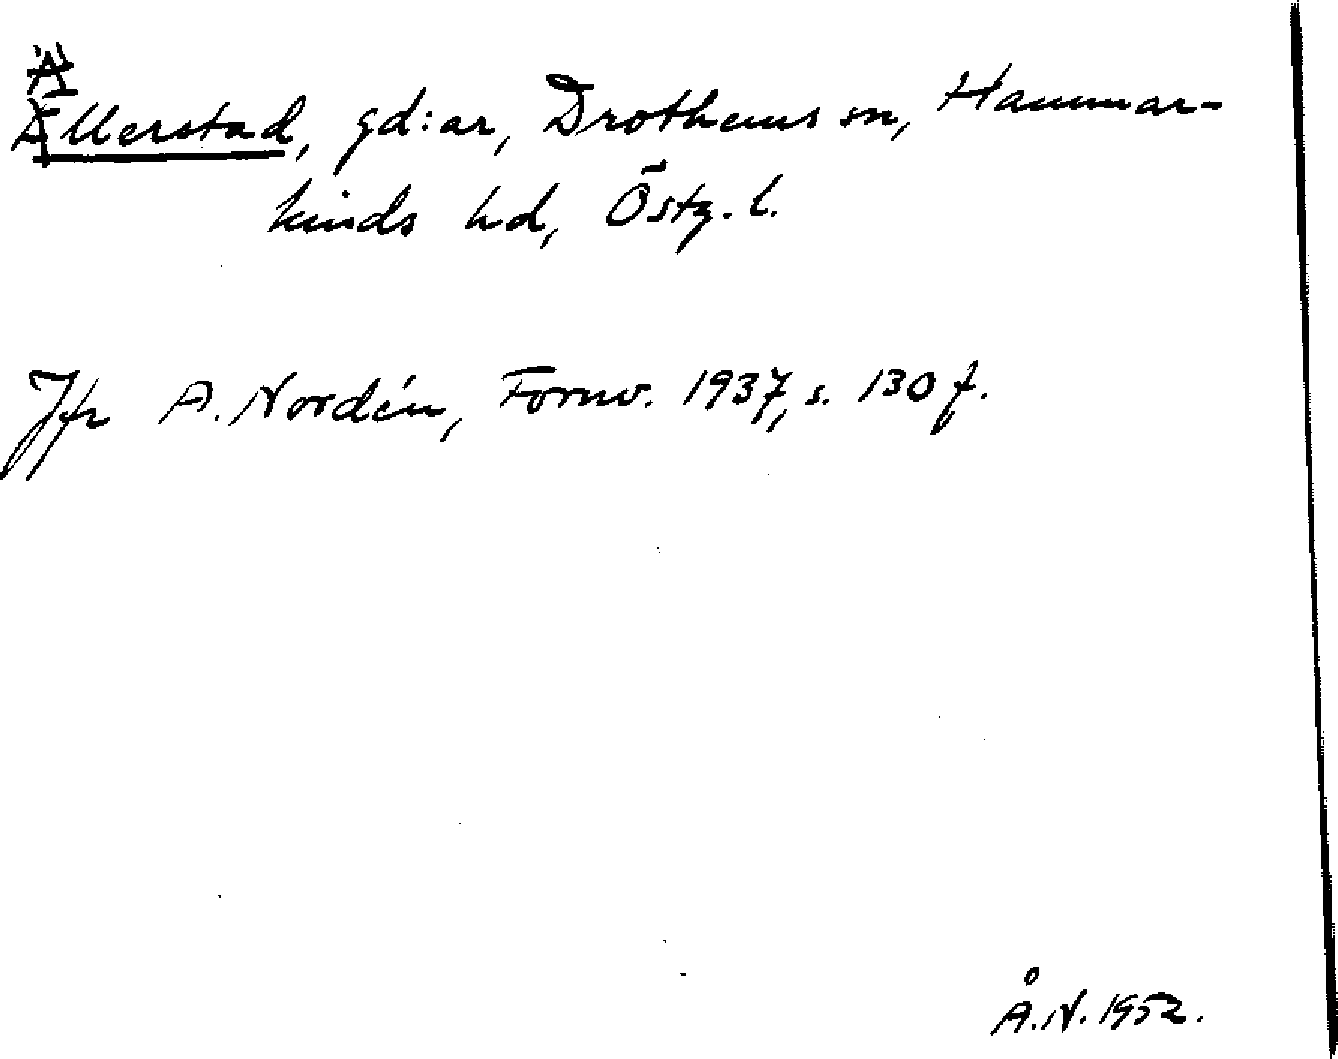 Ä
Ellerstad, gd:ar, Drothems sn, Hammar-
kinds hd, Östg. l.
Jfr A. Nordén, Fornv. 1937, s. 130 f.
Å.N. 1952.